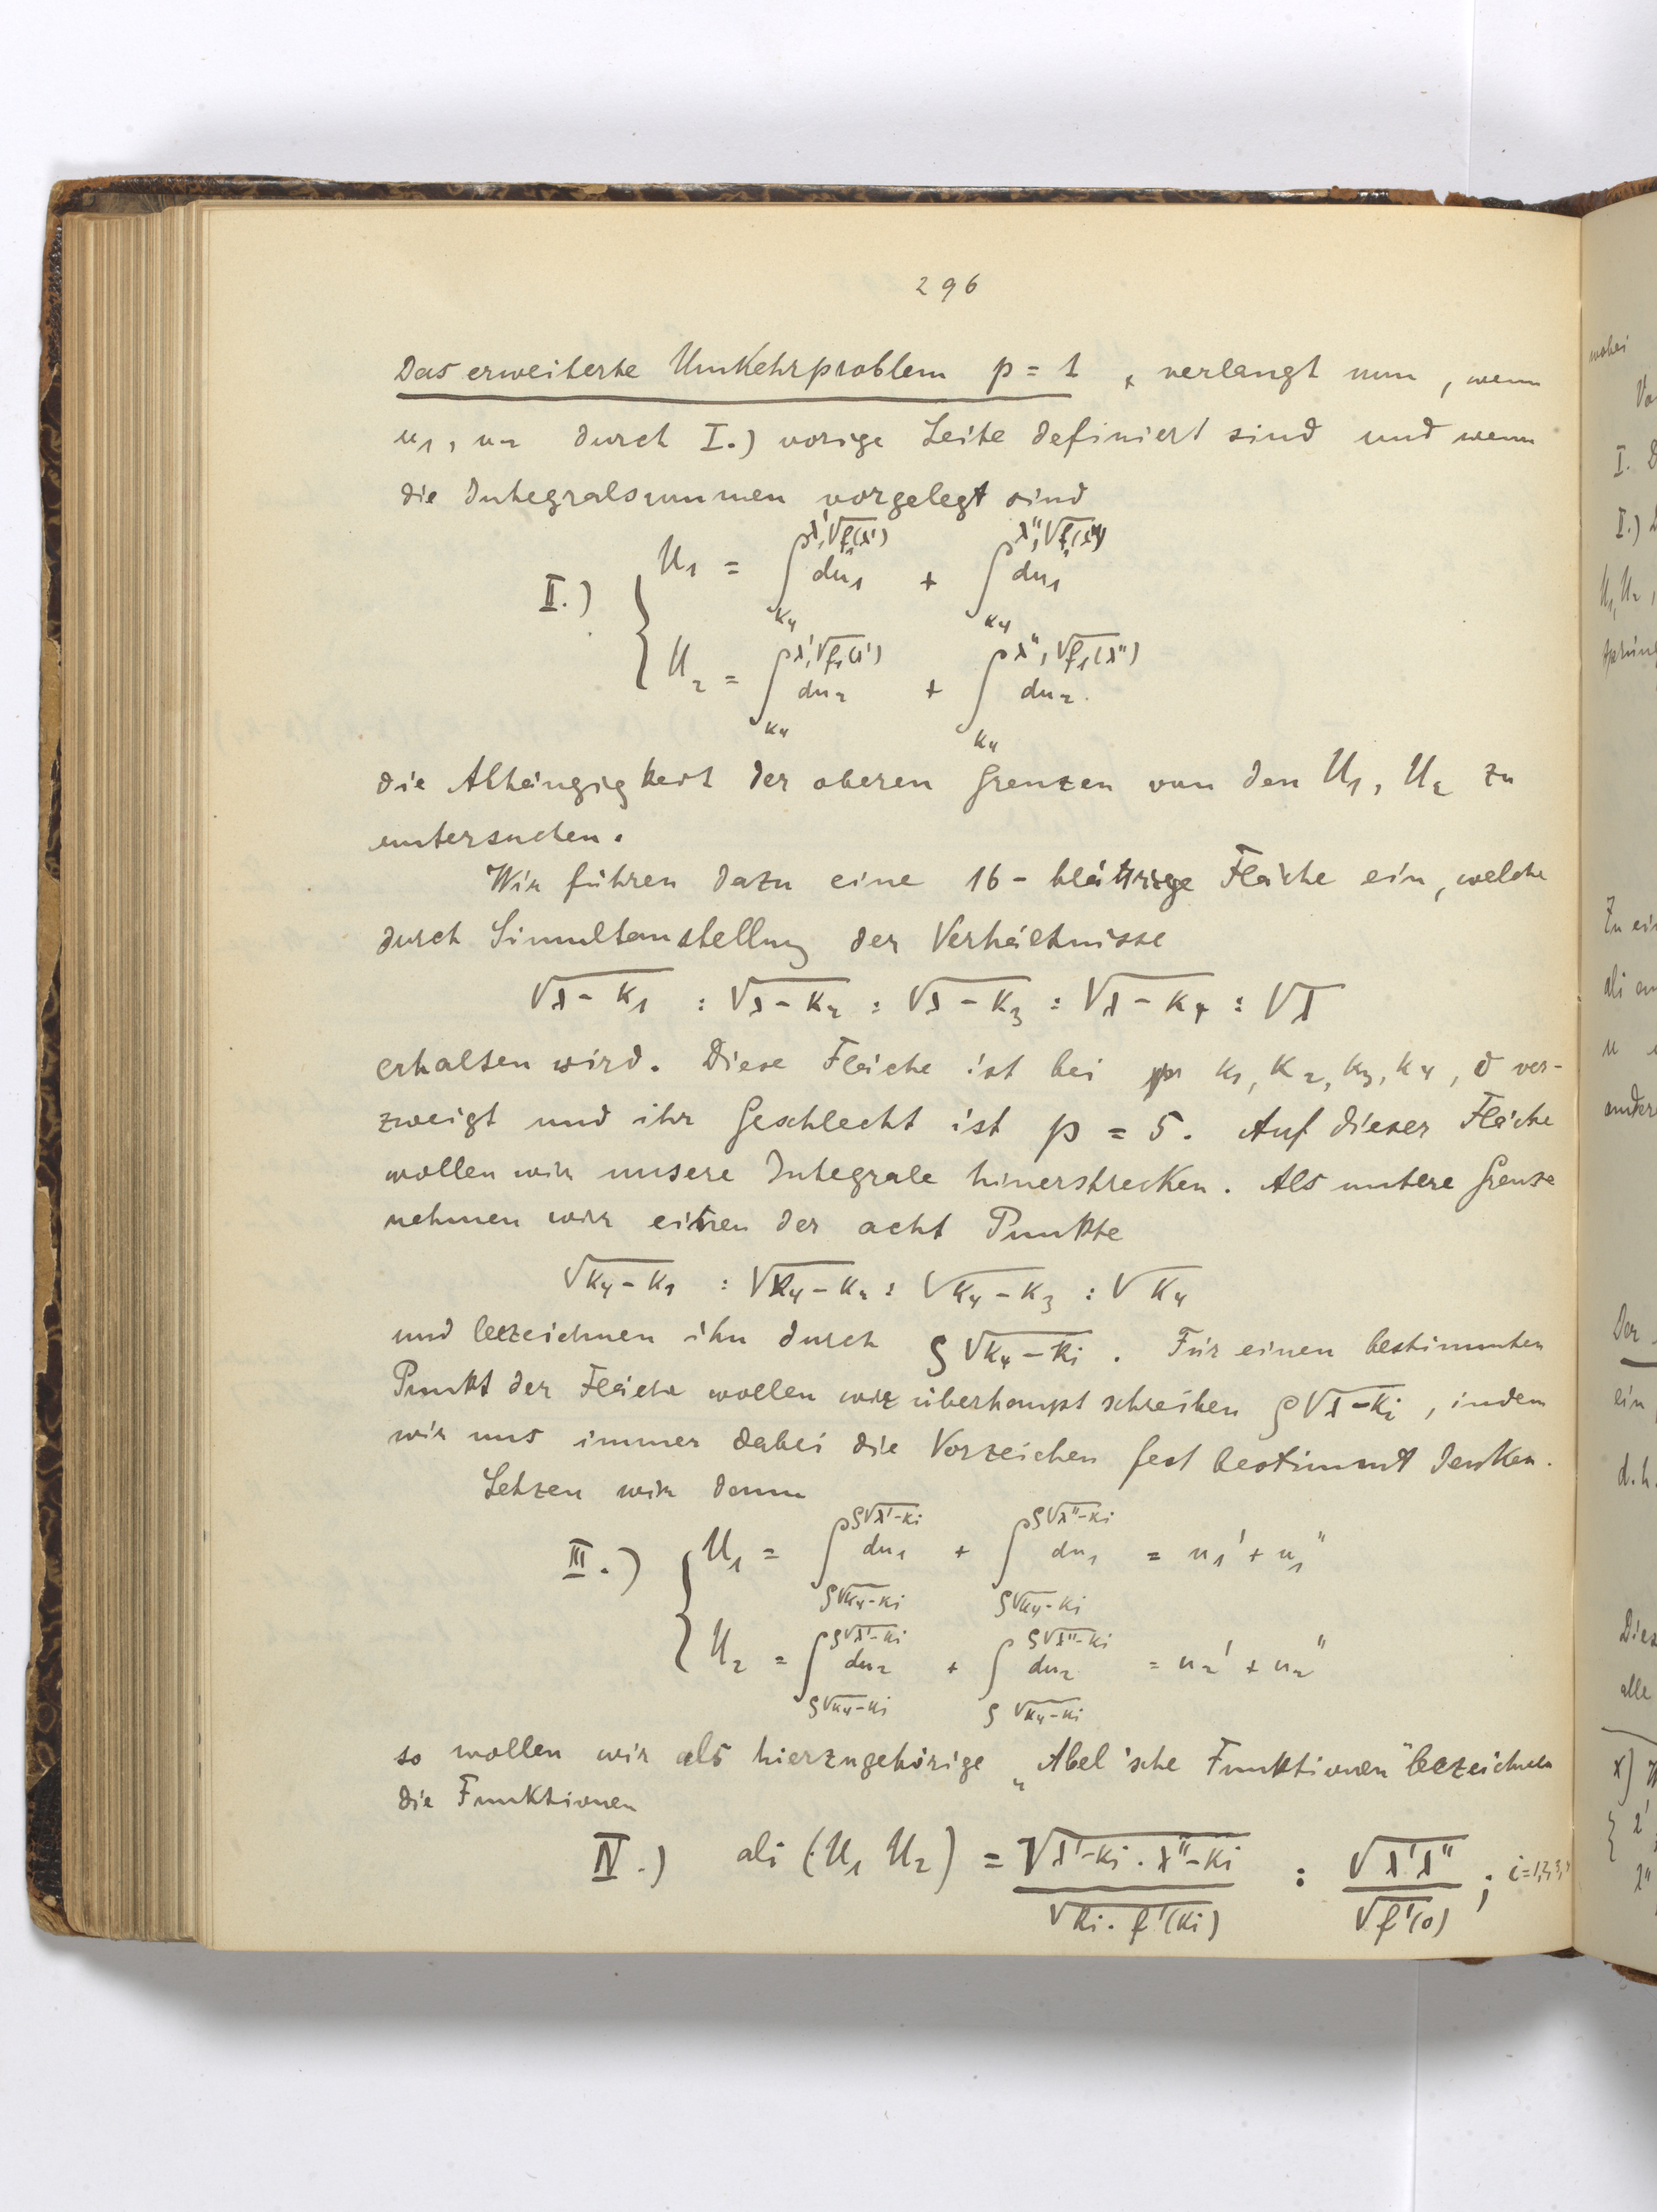 296
Das erweiterte Umkehrproblem p = 1, verlangt nun, wenn
u₁, u₂ durch I.) vorige Seite definiert sind und wenn
die Integralsummen vorgelegt sind
II.) { U₁ = ∫_{k₄}^{λ', √f₁(λ')} du₁ + ∫_{k₄}^{λ'', √f₁(λ'')} du₁
U₂ = ∫_{k₄}^{λ', √f₁(λ')} du₂ + ∫_{k₄}^{λ'', √f₁(λ'')} du₂.
die Abhängigkeit der oberen Grenzen von den U₁, U₂ zu
untersuchen.
Wir führen dazu eine 16-blättrige Fläche ein, welche
durch Simultanstellung der Verhältnisse
√λ-k₁ : √λ-k₂ : √λ-k₃ : √λ-k₄ : √λ
erhalten wird. Diese Fläche ist bei k₁, k₂, k₃, k₄, 0 ver-
zweigt und ihr Geschlecht ist p = 5. Auf dieser Fläche
wollen wir unsere Integrale hinerstrecken. Als untere Grenze
nehmen wir einen der acht Punkte
√k₄-k₁ : √k₄-k₂ : √k₄-k₃ : √k₄
und bezeichnen ihn durch ϱ√k₄-ki. Für einen bestimmten
Punkt der Fläche wollen wir überhaupt schreiben ϱ√λ-ki, indem
wir uns immer dabei die Vorzeichen fest bestimmt denken.
Setzen wir dann
III.) { U₁ = ∫_{ϱ√k₄-ki}^{ϱ√λ'-ki} du₁ + ∫_{ϱ√k₄-ki}^{ϱ√λ''-ki} du₁ = u₁' + u₁''
U₂ = ∫_{ϱ√k₄-ki}^{ϱ√λ'-ki} du₂ + ∫_{ϱ√k₄-ki}^{ϱ√λ''-ki} du₂ = u₂' + u₂''
so wollen wir als hierzugehörige „Abel'sche Funktionen" bezeichnen
die Funktionen
IV.) ali (U₁ U₂) = √λ'-ki · λ''-ki / √ki · f'(ki) : √λ'λ'' / √f'(0) ; i=1,2,3,
wobei
I.
II.)
U₁, U₂,
ein
d.h.
alle
x)